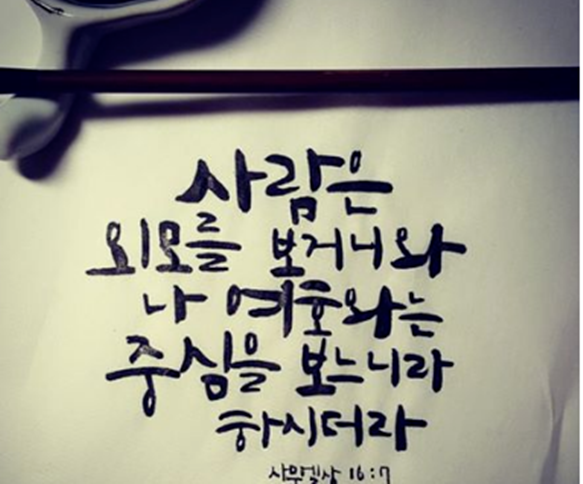 사람은
외모를 보거니와
나 여호와는
중심을 보느니라
하시더라
사무엘상 16:7